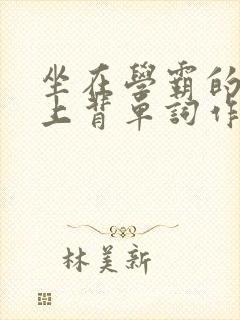 坐在學霸的
上背單詞作
林美新